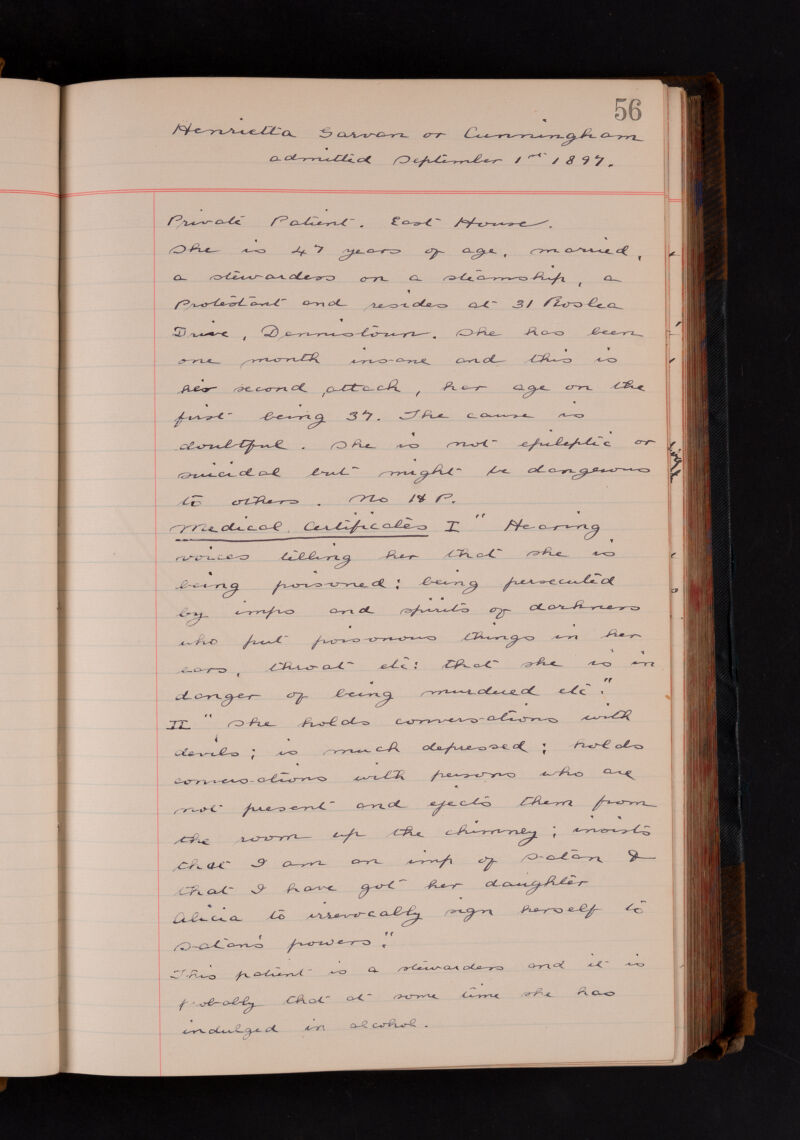 56
Henrietta Garven or Cunningham
admitted September 1st 1897.
Private Patient. East House.
She is 47 years of age, married,
a stewardess on a steamship, a
Protestant and resides at 31 Roslea
Drive, Dennistoun. She has been
one month insane and this is
her second attack, her age on the
first being 37. The cause is
doubtful. She is not epileptic or
suicidal but might be dangerous
to others. No 18 P.
Medical Certificates I " Hearing
voices telling her that she is
being poisoned: being persecuted
by imps and spirits of darkness
who put poisonous things in her
ears, throat etc: that she is in
danger of being murdered etc."
II " She holds conversations with
devils; is much depressed; holds
conversations with persons who are
not present and ejects them from
the room up the chimney; insists
that I am an imp of Satan &
that I have got her daughter
Alicia to irrevocably sign herself to
Satan's powers."
This patient is a stewardess and it is
probably that at some time she has
indulged in alcohol.